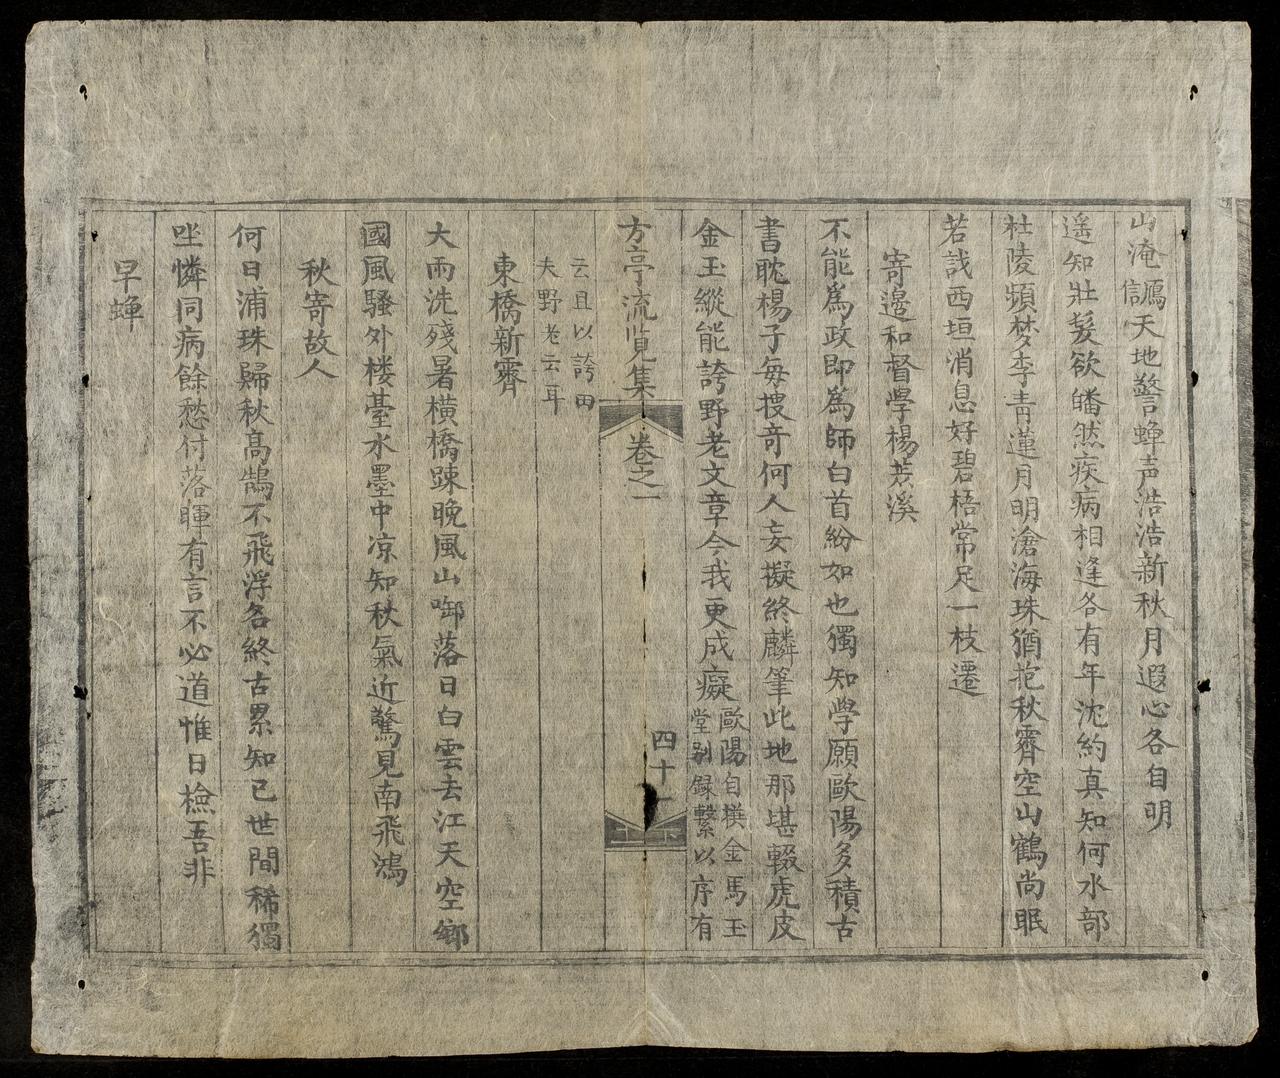 山淹謳天地警蟬声浩浩新秋月遐心各自明
遥知壯髮欲皤然疾病相逢各有年沈約真知何水部
杜陵頻梦李青蓮月明滄海珠猶抱秋霽空山鶴尚眠
若戔西垣消息好碧梧常足一枝遷
寄邊和督學楊炗溪
不能爲政即爲師白首紛如也獨知學願歐陽多積古
書耽楊子每搜竒何人妄擬終麟筆此地那堪輟虎皮
金玉縱能誇野老文章今我更成癡
歐陽自撰金馬玉
堂别録繫以序有
方亭流覧集 卷之一 四十一
云且以誇田
夫野老云耳
東橋新霽
大雨洗殘暑橫橋踈晚風山啣落日白雲去江天空鄉
國風騷外楼臺水墨中凉知秋氣近驚見南飛鴻
秋寄故人
何日浦珠歸秋高鵠不飛浮名終古累知已世間稀獨
㘴憐同病餘愁付落暉有言不必道惟日檢吾非
早蟬